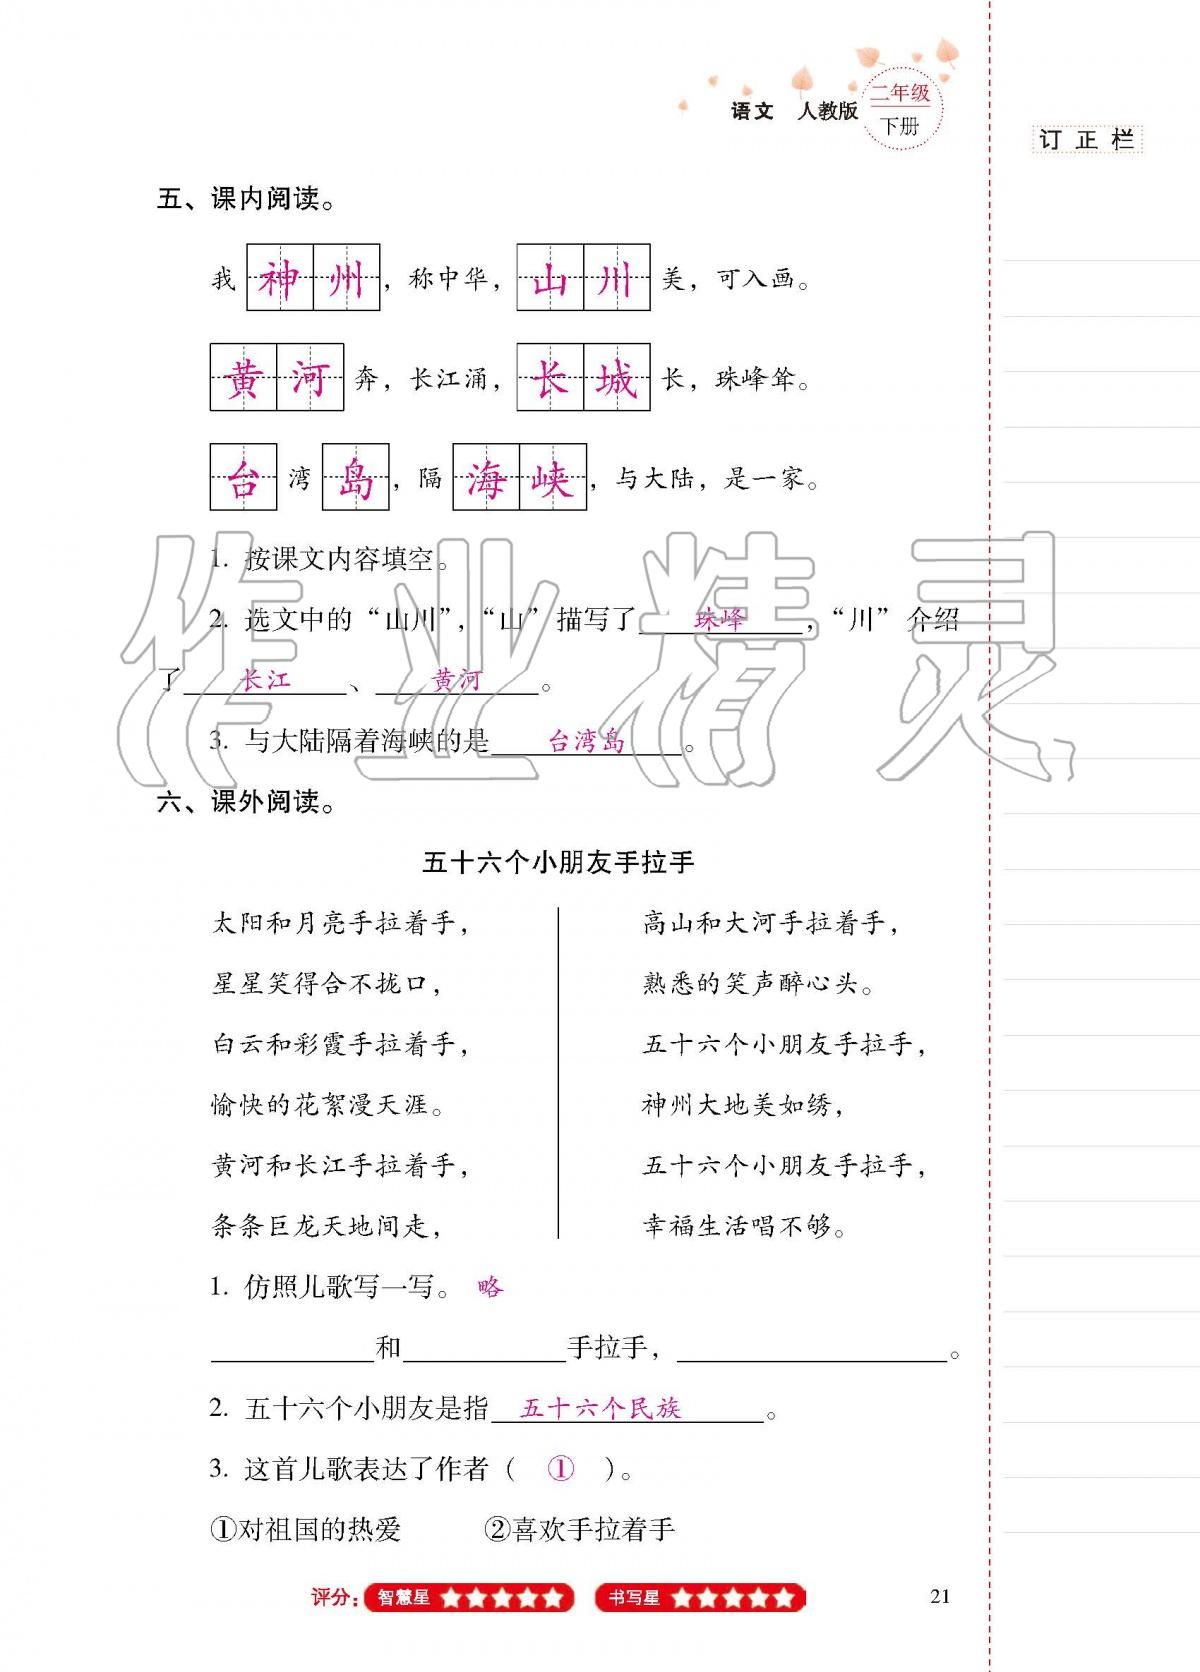 语文 人教版 二年级
下册
订正栏
五、课内阅读。
我神州，称中华，山川美，可入画。
黄河奔，长江涌，长城长，珠峰耸。
台湾岛，隔海峡，与大陆，是一家。
1. 按课文内容填空。
2. 选文中的“山川”，“山”描写了珠峰，“川”介绍
了长江、黄河。
3. 与大陆隔着海峡的是台湾岛。
作业精灵
六、课外阅读。
五十六个小朋友手拉手
太阳和月亮手拉着手，
星星笑得合不拢口，
白云和彩霞手拉着手，
愉快的花絮漫天涯。
黄河和长江手拉着手，
条条巨龙天地间走，
高山和大河手拉着手，
熟悉的笑声醉心头。
五十六个小朋友手拉手，
神州大地美如绣，
五十六个小朋友手拉手，
幸福生活唱不够。
1. 仿照儿歌写一写。 略
________和________手拉手，____________。
2. 五十六个小朋友是指五十六个民族。
3. 这首儿歌表达了作者（ ① ）。
①对祖国的热爱 ②喜欢手拉着手
评分：智慧星 书写星
21